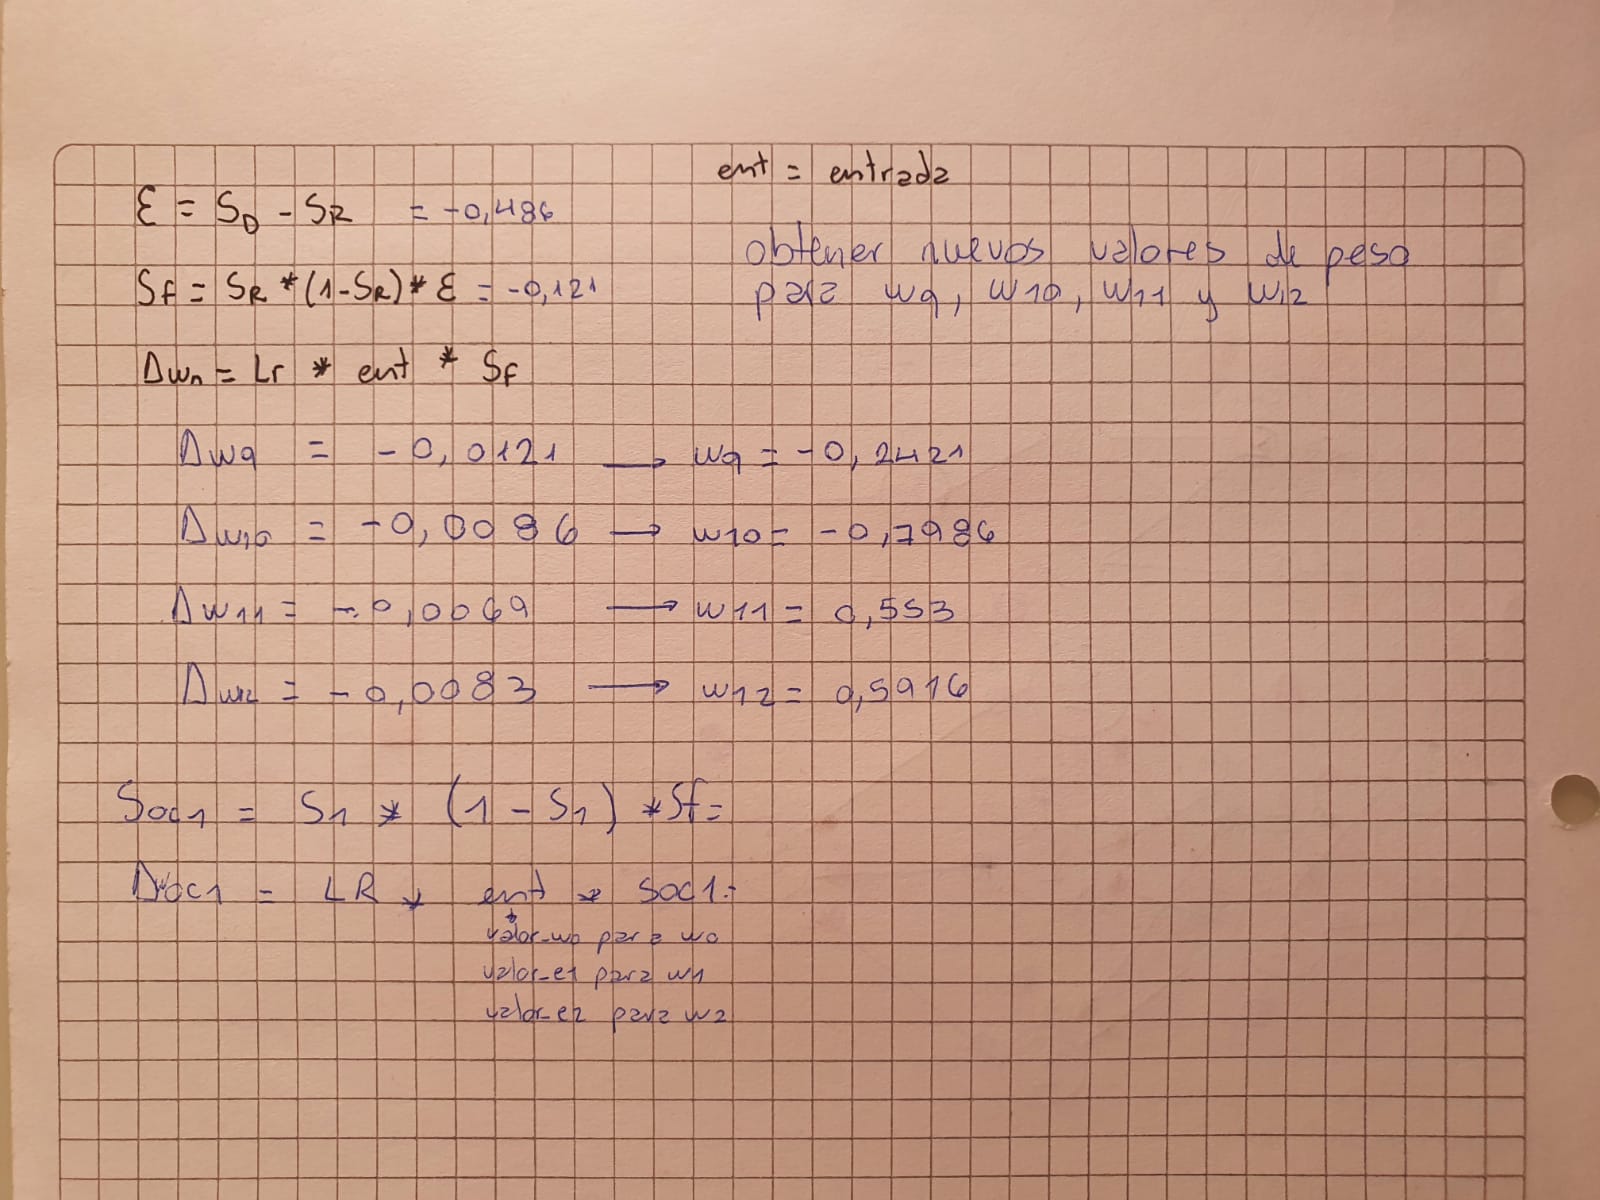 ent = entrada
ε = S_D - S_R = -0,486
obtener nuevos valores de peso
para w9, w10, w11 y w12
Sf = S_R * (1-S_R) * ε = -0,121
Δwn = Lr * ent * Sf
Δw9 = -0,0121 → w9 = -0,2421
Δw10 = -0,0086 → w10 = -0,7986
Δw11 = -0,0069 → w11 = 0,553
Δw12 = -0,0083 → w12 = 0,5916
Soc1 = S1 * (1 - S1) * Sf =
Δoc1 = LR * ent * Soc1 =
valor_w0 para w0
valor_e1 para w1
valor_e2 para w2